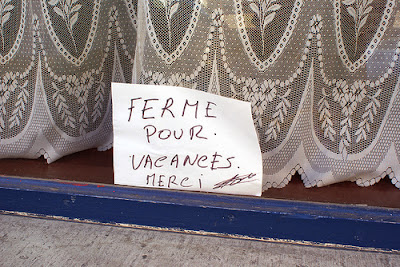 FERME
POUR.
VACANCES.
MERCI